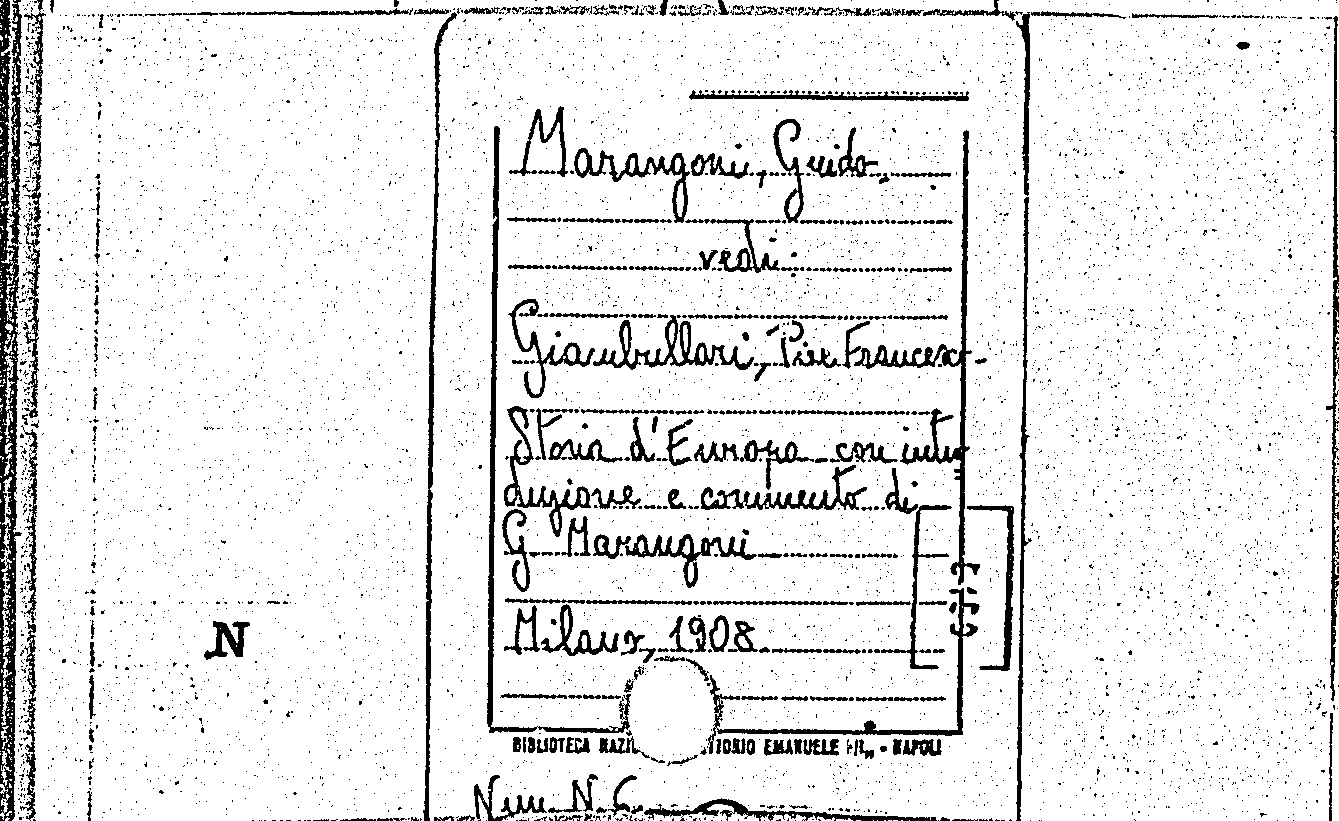 Marangoni, Guido.
vedi:
Giambullari, Pier Francesco-
Storia d'Europa con intro
duzione e commento di
G Marangoni
Milano, 1908.
N
BIBLIOTECA EMANUELE III„ - NAPOLI